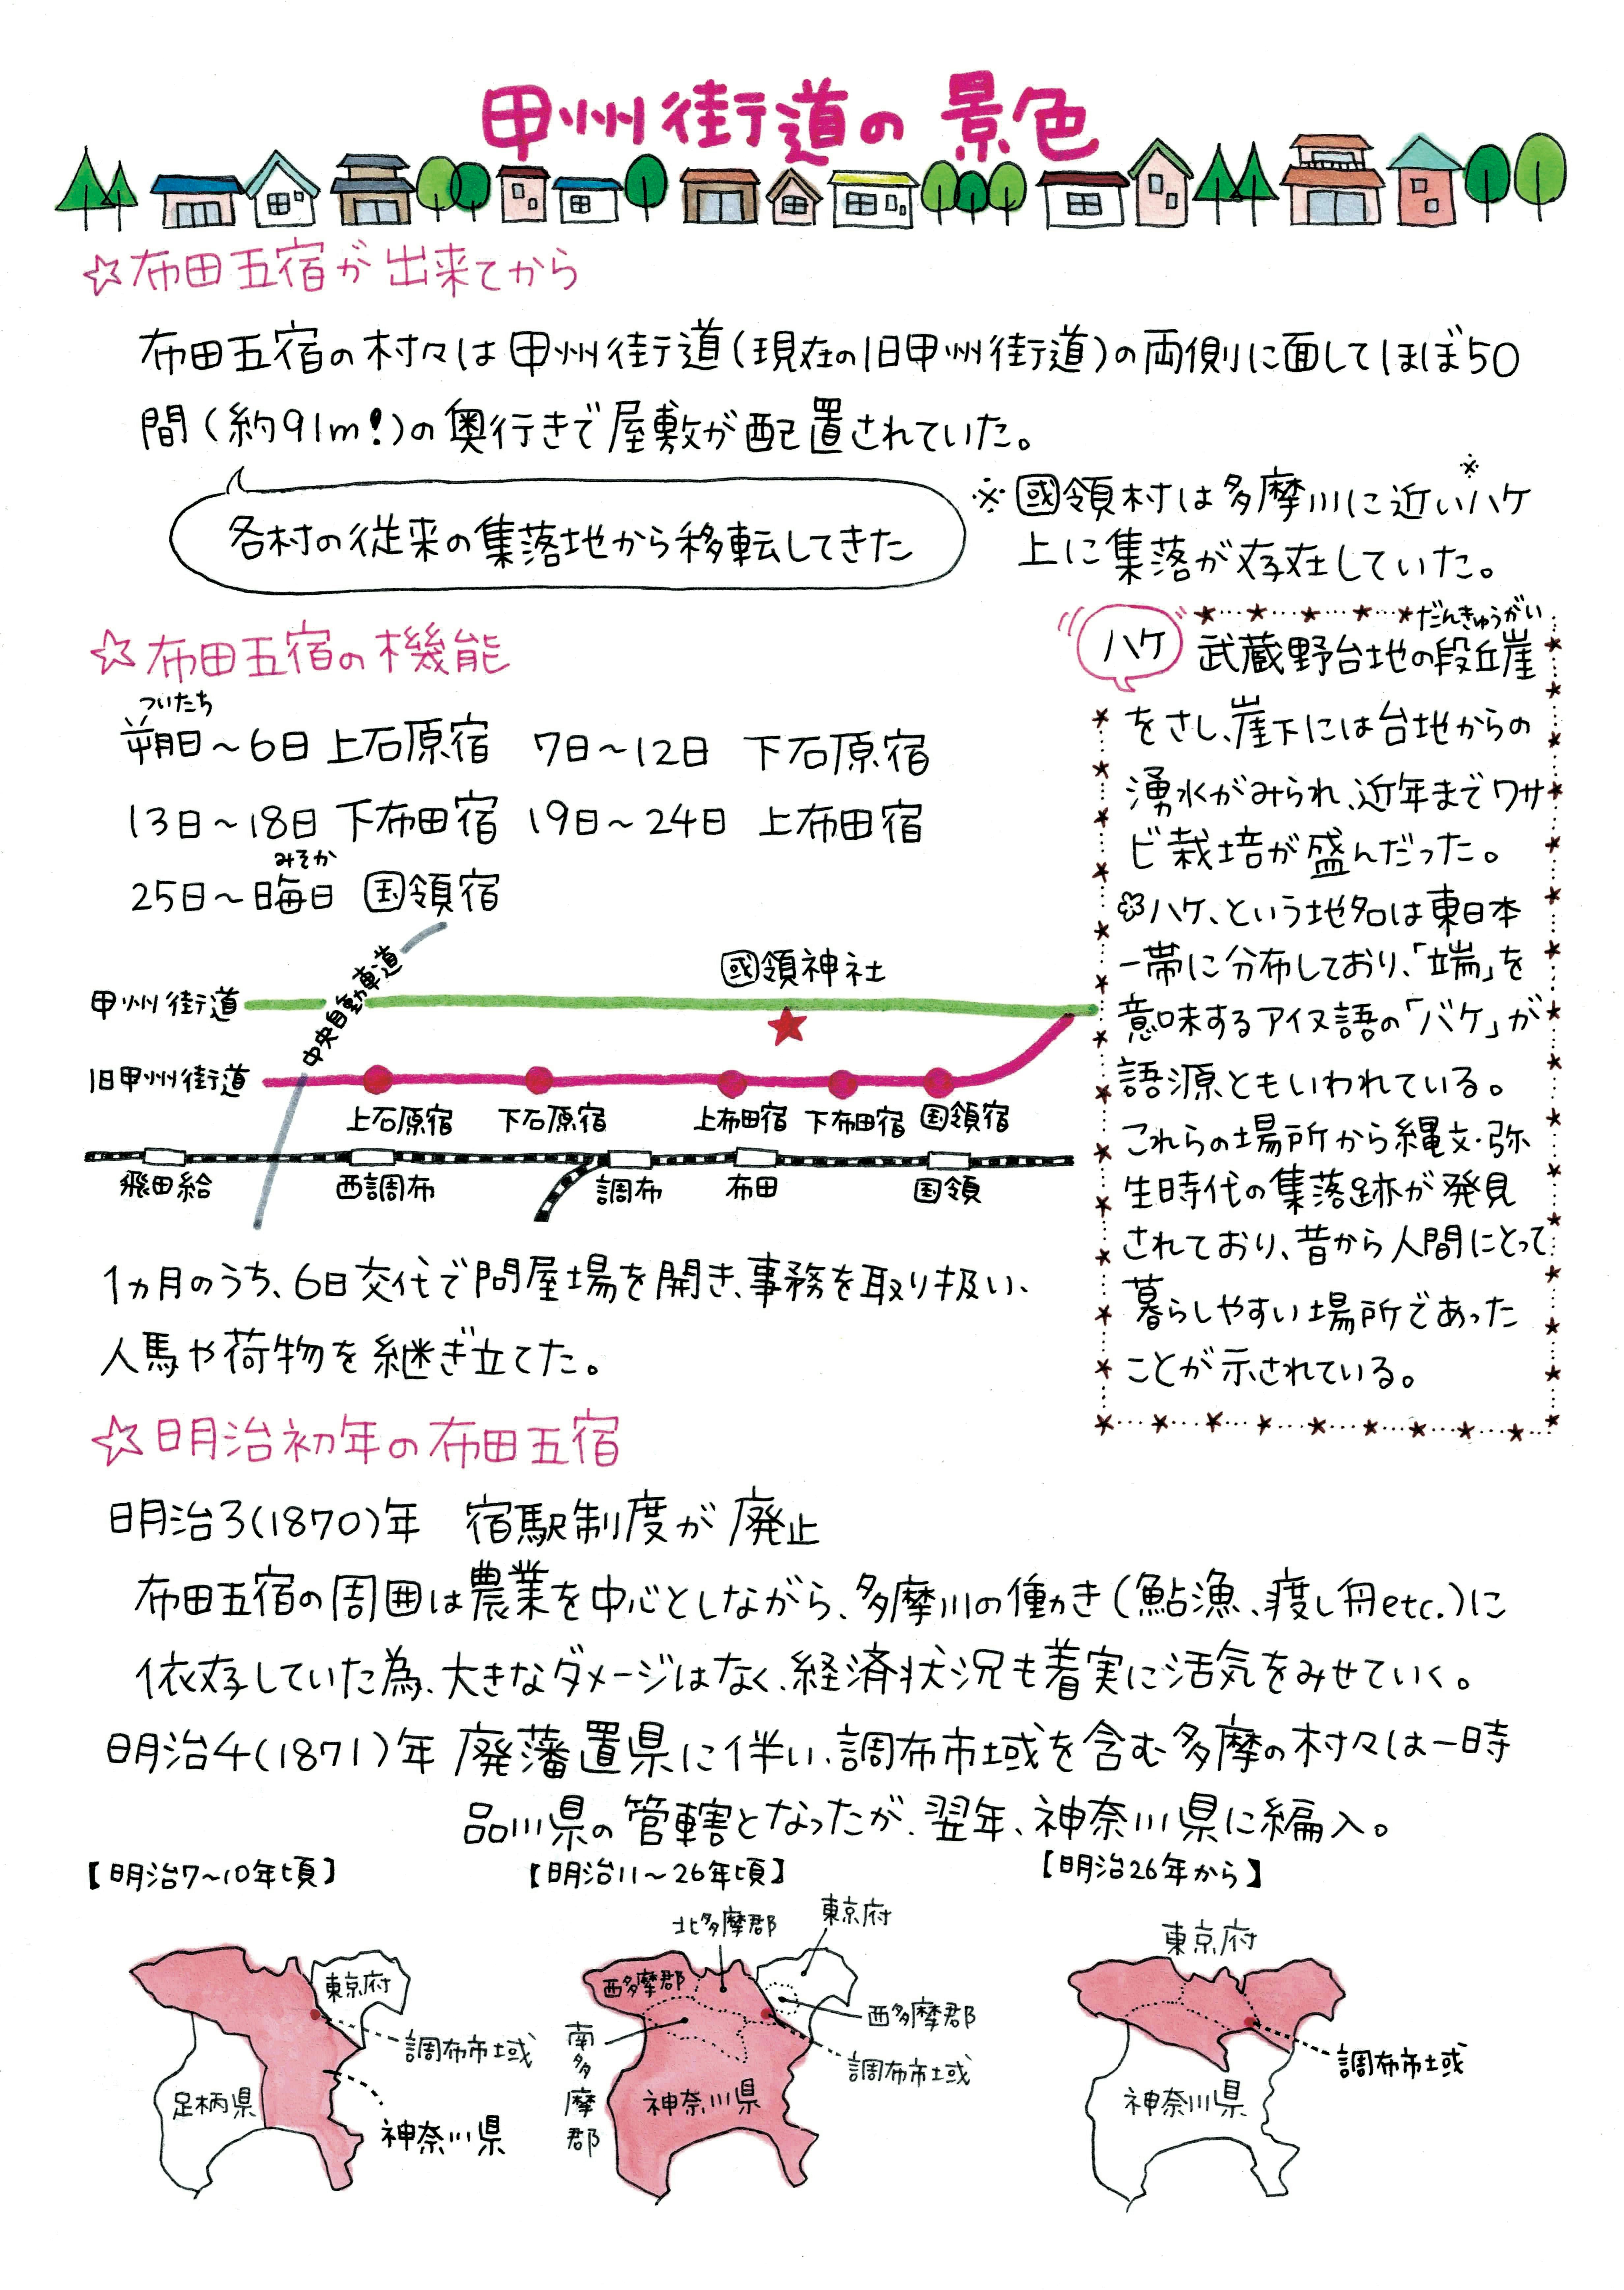 甲州街道の景色
☆布田五宿が出来てから
布田五宿の村々は甲州街道(現在の旧甲州街道)の両側に面してほぼ50
間(約91m!)の奥行きで屋敷が配置されていた。
各村の従来の集落地から移転してきた
※國領村は多摩川に近いハケ※
上に集落が存在していた。
☆布田五宿の機能
ついたち
朔日～6日 上石原宿 7日～12日 下石原宿
13日～18日 下布田宿 19日～24日 上布田宿
みそか
25日～晦日 国領宿
中央自動車道
國領神社
甲州街道
旧甲州街道
上石原宿 下石原宿 上布田宿 下布田宿 国領宿
飛田給 西調布 調布 布田 国領
1ヵ月のうち、6日交代で問屋場を開き、事務を取り扱い、
人馬や荷物を継ぎ立てた。
ハケ
だんきゅうがい
武蔵野台地の段丘崖
をさし、崖下には台地からの
湧水がみられ、近年までワサ
ビ栽培が盛んだった。
✿ハケ、という地名は東日本
一帯に分布しており、「端」を
意味するアイヌ語の「バケ」が
語源ともいわれている。
これらの場所から縄文・弥
生時代の集落跡が発見
されており、昔から人間にとって
暮らしやすい場所であった
ことが示されている。
☆明治初年の布田五宿
明治3(1870)年 宿駅制度が廃止
布田五宿の周囲は農業を中心としながら、多摩川の働き(鮎漁、渡し舟etc.)に
依存していた為、大きなダメージはなく、経済状況も着実に活気をみせていく。
明治4(1871)年 廃藩置県に伴い、調布市域を含む多摩の村々は一時
品川県の管轄となったが、翌年、神奈川県に編入。
【明治7～10年頃】
東京府
調布市域
足柄県
神奈川県
【明治11～26年頃】
北多摩郡
東京府
西多摩郡
西多摩郡
南多摩郡
調布市域
神奈川県
【明治26年から】
東京府
調布市域
神奈川県